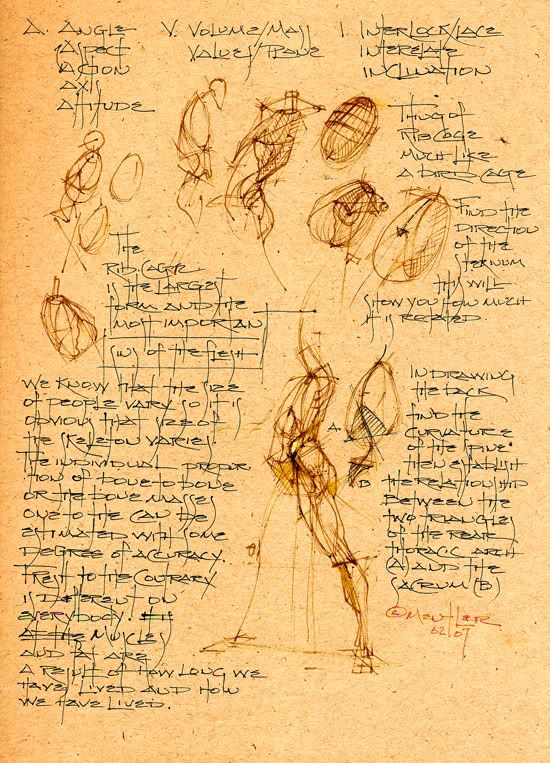 A. ANGLE
ASPECT
ACTION
AXIS
ATTITUDE
V. VOLUME/MASS
VALUES/PLANE
I. INTERLOCK/LACE
INTERELATE
INCLINATION
THUG OF
RIB CAGE
MUCH LIKE
A BIRD CAGE
FIND THE
DIRECTION
OF THE
STERNUM
THIS WILL
SHOW YOU HOW MUCH
IT IS ROTATED
THE
RIB. CAGE
IS THE LARGEST
FORM AND THE
MOST IMPORTANT
SINS OF THE FLESH
WE KNOW THAT THE SIZE
OF PEOPLE VARY SO IT IS
OBVIOUS THAT SIZE OF
THE SKELETON VARIES.
THE INDIVIDUAL PROPOR
TION OF BONE TO BONE
OR THE BONE MASSES
ONE TO THE CAN BE
ESTIMATED WITH SOME
DEGREE OF ACCURACY.
FLESH TO THE CONTRARY
IS DIFFERENT ON
EVERYBODY.
THE MUSCLES
AND FAT ARE
A RESULT OF HOW LONG WE
HAVE LIVED AND HOW
WE HAVE LIVED.
A.
B
IN DRAWING
THE BACK
FIND THE
CURVATURE
OF THE SPINE
THEN ESTABLISH
THE RELATIONSHIP
BETWEEN THE
TWO TRIANGLES
OF THE REAR
THORACIC ARCH
(A) AND THE
SACRUM (B)
©MENTLER
62.07